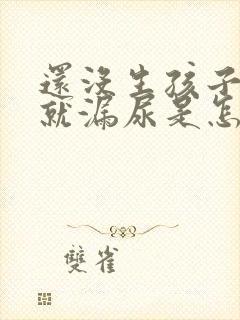 還沒生孩子
就漏尿是怎
雙雀